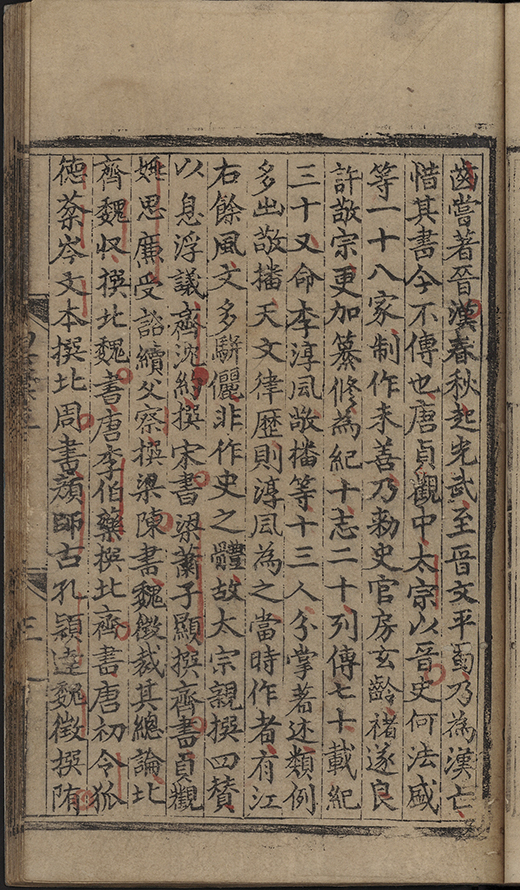 齒嘗著晉漢春秋起光武至晉文平蜀乃為漢亡
惜其書今不傳也唐貞觀中太宗以晉史何法盛
等一十八家制作未善乃勑史官房玄齡褚遂良
許敬宗更加纂修為紀十志二十列傳七十載紀
三十又命李淳風敬播等十三人分掌著述類例
多出敬播天文律歷則淳風為之當時作者有江
右餘風文多駢儷非作史之體故太宗親撰四賛
以息浮議齊沈約撰宋書梁蕭子顯撰齊書貞觀
姚思廉受詔續父察撰梁陳書魏徵裁其總論北
齊魏収撰北魏書唐李伯藥撰北齊書唐初令狐
德棻岑文本撰北周書顏師古孔穎達魏徵撰隋